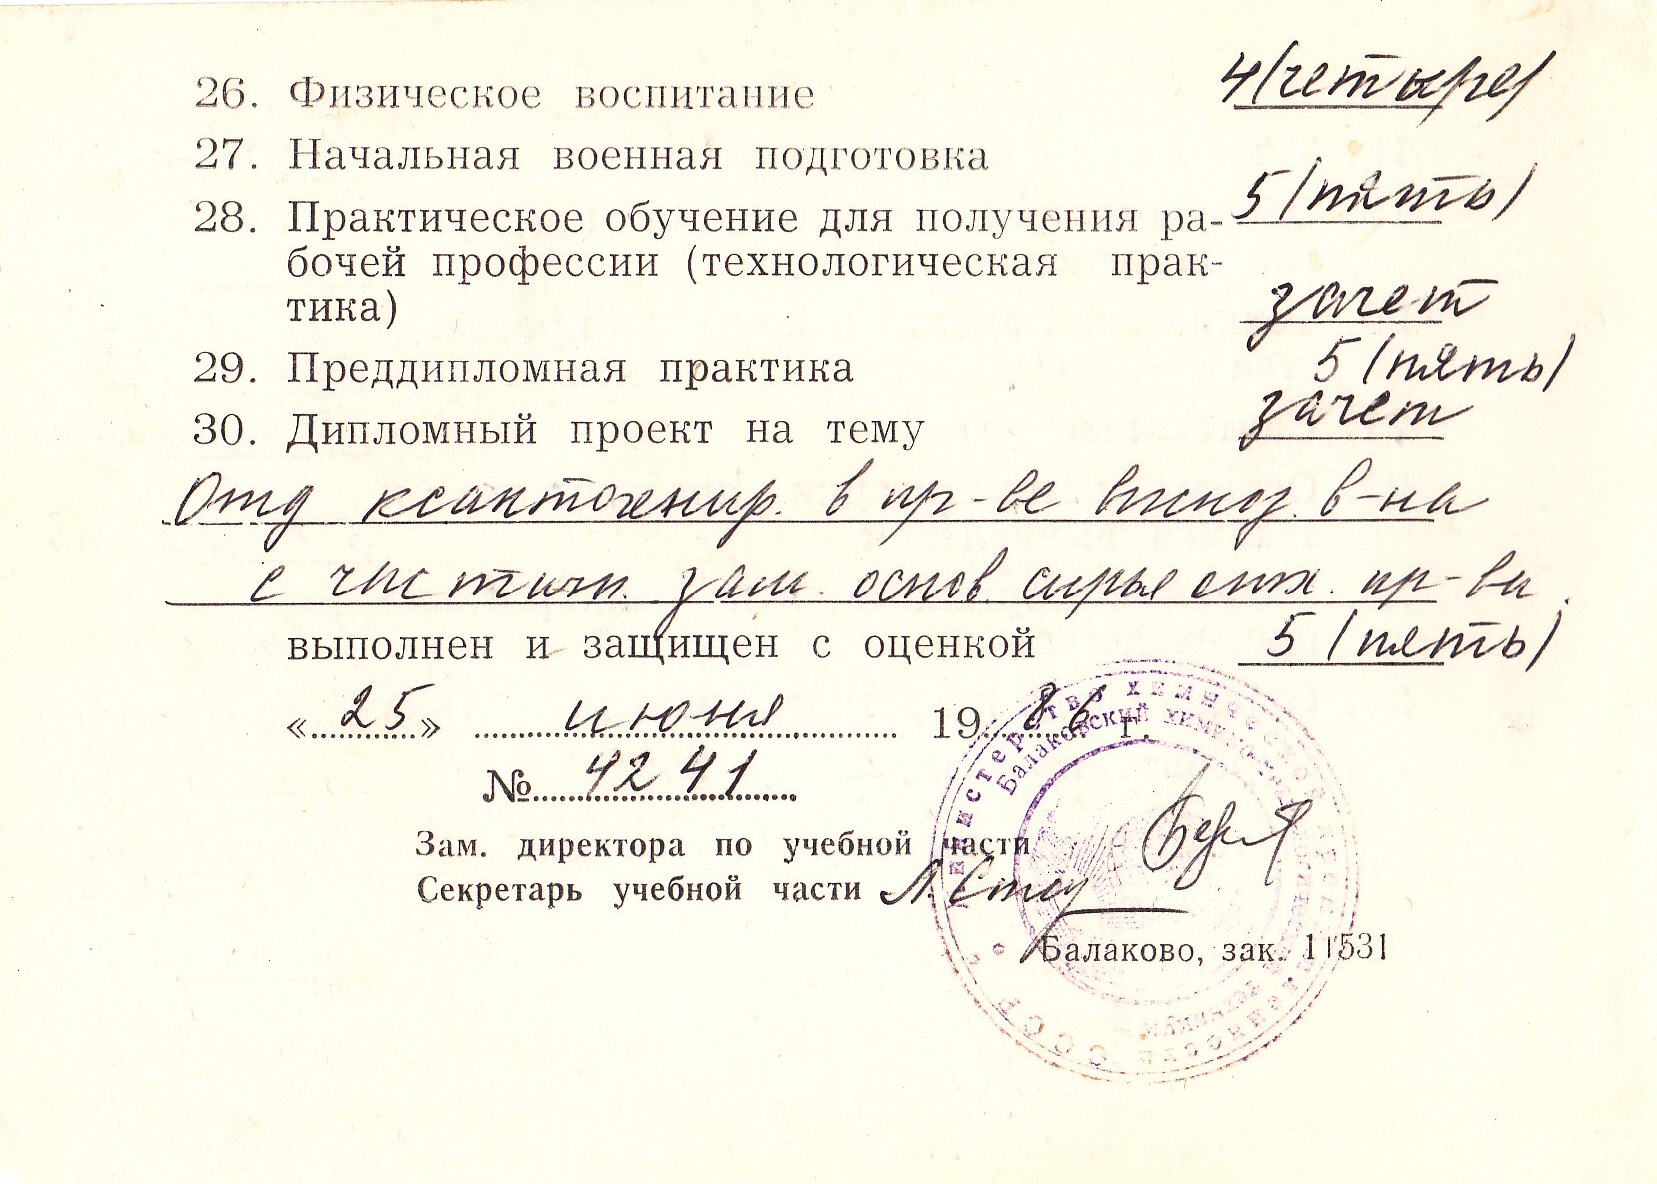 26. Физическое воспитание 4 (четыре)
27. Начальная военная подготовка 5 (пять)
28. Практическое обучение для получения ра-
бочей профессии (технологическая прак-
тика) зачет
29. Преддипломная практика 5 (пять)
зачет
30. Дипломный проект на тему
Отд ксантогенир. в пр-ве вискоз. в-на
с частичн. зам. основ. сырья отх. пр-ва.
выполнен и защищен с оценкой 5 (пять)
«25» июня 1986 г.
№ 4241
Зам. директора по учебной части
Секретарь учебной части
Балаково, зак. 11531
Министерство химической промышленности СССР
Балаковский химико- техникум